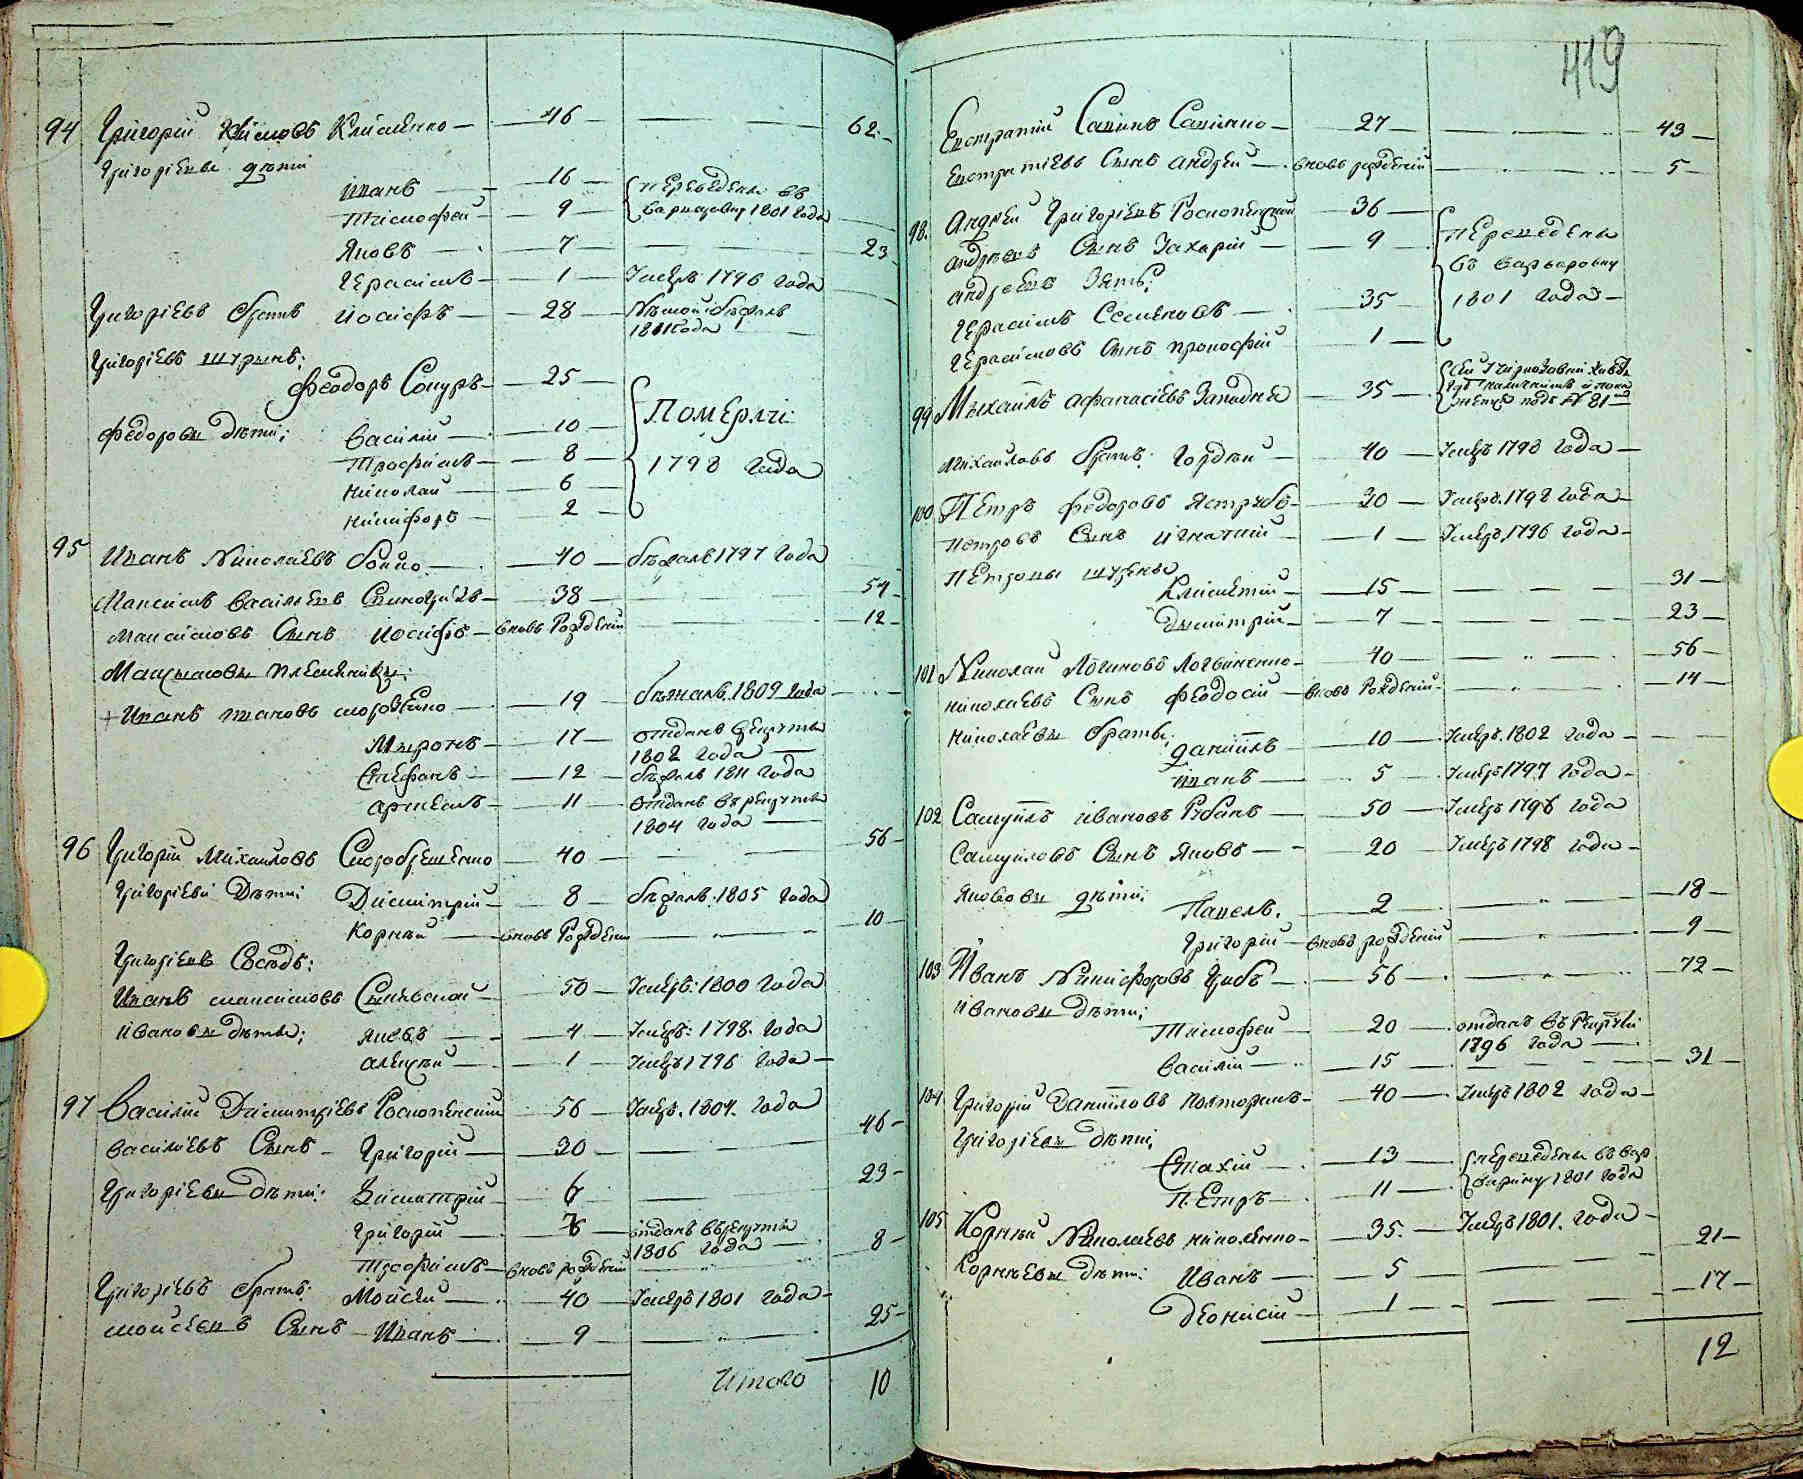 94 Григорій Климовъ Клименко — 46 — 62 —
Григоріевы дѣти
Иванъ — 16 — переведены въ
Тимофей — 9 — Варваровку 1801 года
Яковъ — 7 — 23
Герасимъ — 1 — Умеръ 1796 года
Григоріевъ братъ Иосифъ — 28 — бѣжалъ
1811 года
Григоріевъ шуринъ:
Феодоръ — 25 —
Федоровы дѣти; Василій — 10 — Померли
Трофимъ — 8 —
1798 года
Николай — 6 —
Никифоръ — 2 —
95 Иванъ Николаевъ Бойко — 40 — бѣжалъ 1797 года
Максимъ Васильевъ — 38 — 54
Максимовъ Сынъ Иосифъ — вновь рожденій — 12 —
Максимовы племянники:
+ Иванъ Ивановъ — 19 — бѣжалъ 1809 года
Миронъ — 17 — отданъ врекруты
1802 года
Стефанъ — 12 — бѣжалъ 1811 года
Артемъ — 11 — отданъ въ рекруты
1804 года
96 Григорій Михайловъ Скоробрешенко — 40 — 56 —
Григоріевы Дѣти: Димитрій — 8 — бѣжалъ 1805 года
Корній — вновь рожденій — 10 —
Григоріевъ Сосѣдъ:
Иванъ Максимовъ — 50 — Умеръ: 1800 года
Ивановы Дѣти; Яковъ — 4 — Умеръ: 1798 года
Алексѣй — 1 — Умеръ 1796 года —
97 Василій Димитріевъ — 56 — Умеръ. 1804. года
Василіевъ Сынъ — Григорій — 30 — 46 —
Григоріевы дѣти: Димитрій — 6 — 23 —
Григорій — отданъ врекруты
1806 года
Трофимъ — вновь рожденій — 8 —
Григоріевъ братъ: Мойсей — 40 — Умеръ 1801 года —
Мойсеевъ Сынъ — Иванъ — 9 — 25 —
Итого 10
419
Евстратій Савинъ Савченко — 27 — 43 —
Евстратіевъ Сынъ Андрей — вновь рожденій — 5 —
98. Андрей Григоріевъ — 36 —
Андреевъ Сынъ Захарій — 9 — переведены
Андреевъ Зять; въ Варваровку
Герасимъ Семеновъ — 35 — 1801 года —
Герасимовъ Сынъ Прокофій — 1 —
99 Михаилъ Афанасіевъ — 35 — подъ № 81
Михайловъ братъ: Гордѣй — 40 — Умеръ 1798 года —
100 Петръ Федоровъ Яструбъ — 30 — Умеръ. 1798 года —
Петровъ Сынъ Игнатій — 1 — Умеръ, 1796 года —
Петровы шурины
Климентій — 15 — 31 —
Димитрій — 7 — 23 —
101 Николай Логиновъ Логвиненко — 40 — 56 —
Николаевъ Сынъ Феодосій — вновь рожденій — 14 —
Николаевы братья: Даніилъ — 10 — Умеръ. 1802 года —
Иванъ — 5 — Умеръ 1797 года —
102 Самуилъ Ивановъ Рубанъ — 50 — Умеръ 1796 года
Самуиловъ Сынъ Яковъ — 20 — Умеръ 1798 года —
Яковы дѣти: Павелъ. — 2 — 18 —
Григорій — вновь рожденій — 9 —
103 Иванъ Никифоровъ — 56 — 72 —
Ивановы Дѣти;
Тимофей — 20 — отданъ въ рекруты
1796 года —
Василій — 15 — 31 —
104 Григорій Данииловъ — 40 — Умеръ 1802 года —
Григоріевы дѣти;
Стахій — 13 — переведены въ Вар
Петръ — 11 — 1801 года
105 Корній Николаевъ Николенко — 35. — Умеръ 1801. года —
Корнѣевы дѣти: Иванъ — 5 — 21 —
Діонисій — 1 — 17 —
12